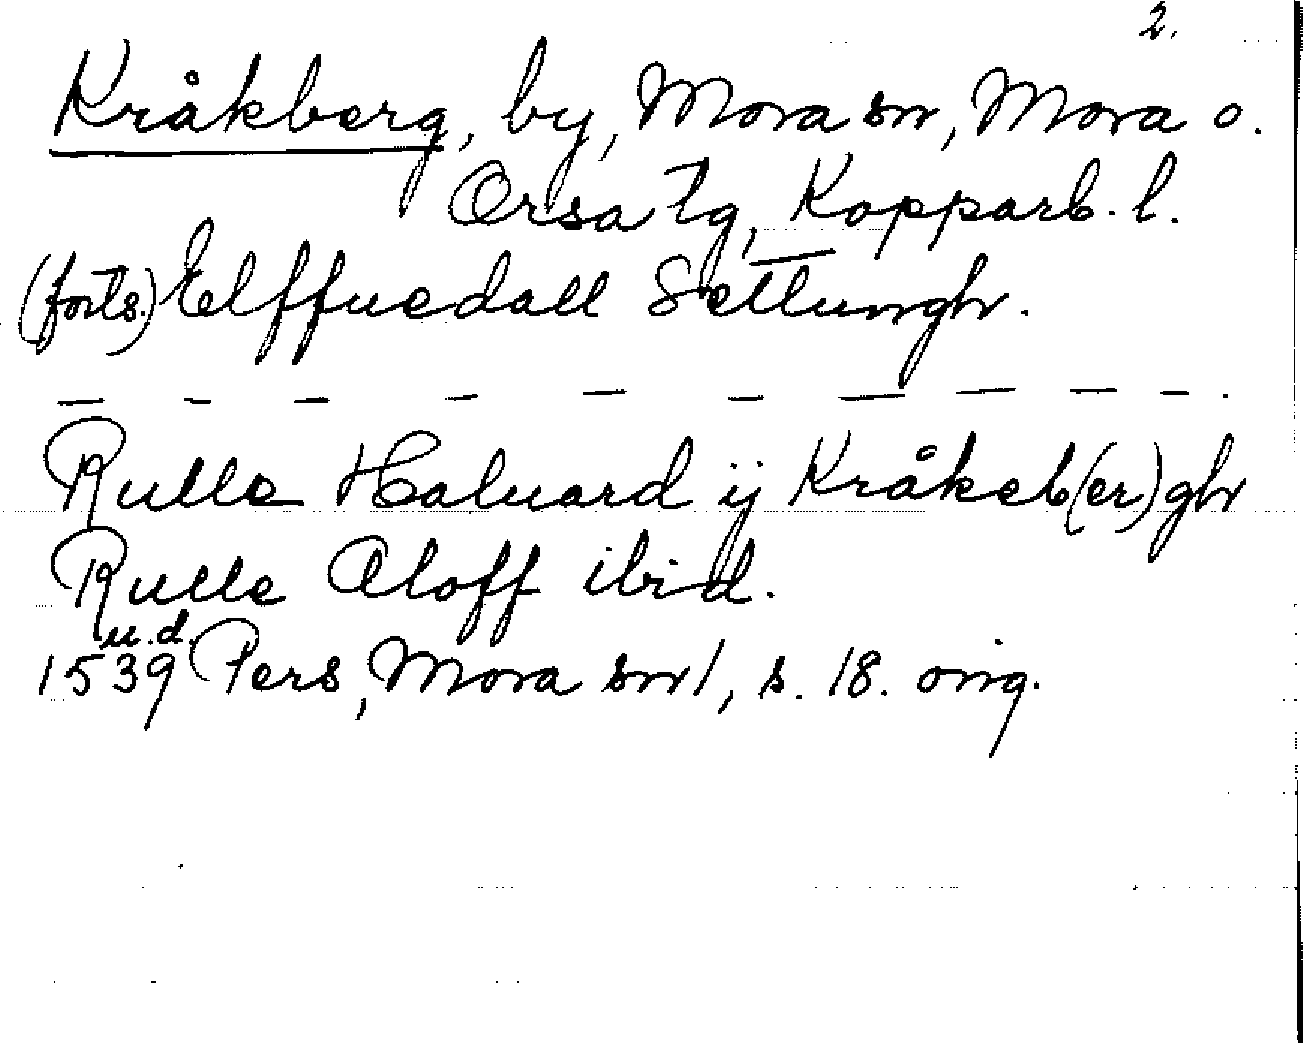 2.
Kråkberg, by, Mora sn, Mora o.
Orsa tg, Kopparb. l.
(forts.) Elffuedall Settungh.
— — — — — — — — — — .
Rulle Haluard ij Kråkeb(er)gh
Rulle Oloff ibid.
u.d.
1539 Pers, Mora sn 1, s. 18. orig.